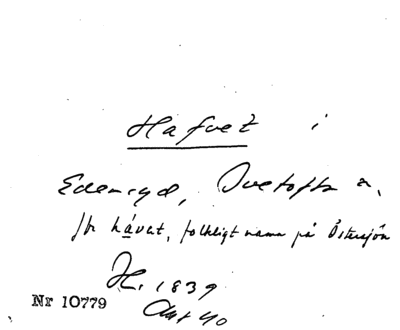 Hafvet i
Edenryd, Ivetofta
Jfr hávat, folkligt namn på Östersjön
H. 1839
Nr 10779
Akt 40